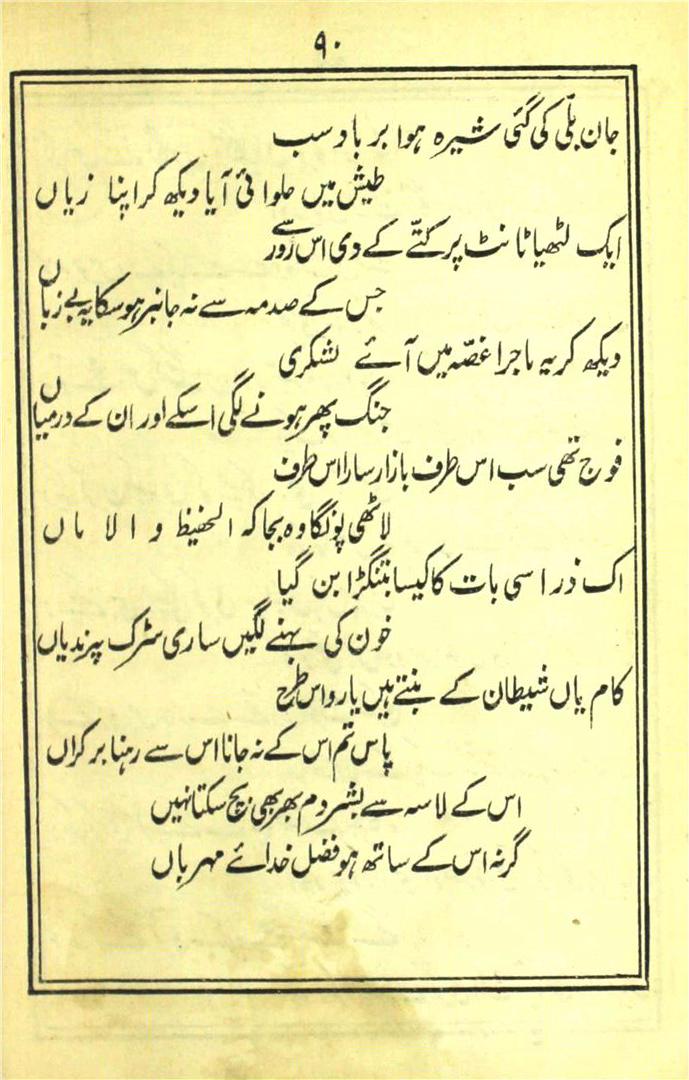 ۹۰
جان بلّی کی گئی شیرہ ہوا برباد سب
طیش میں حلوائی آیا دیکھ کر اپنا زیاں
ایک لٹھیا ٹانٹ پر کتّے کے دی اس زور سے
جس کے صدمہ سے نہ جانبر ہوسکا یہ بے زباں
دیکھ کر یہ ماجرا غصّہ میں آئے لشکری
جنگ پھر ہونے لگی اسکے اور ان کے درمیاں
فوج تھی سب اس طرف بازار سارا اس طرف
لاٹھی پونگا وہ بجا کہ الحفیظ و الاماں
اک ذرا سی بات کا کیسا بتنگڑا بن گیا
خون کی بہنے لگیں ساری سڑک پر ندیاں
کام یاں شیطان کے بنتے ہیں یارو اس طرح
پاس تم اس کے نہ جانا اس سے رہنا بر کراں
اس کے لاسہ سے بشر دم بھر بھی بچ سکتا نہیں
گر نہ اس کے ساتھ ہو فضل خدائے مہرباں